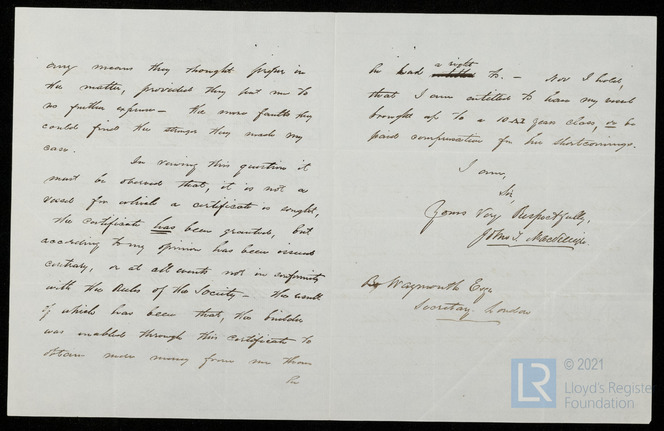 any means they thought proper in
the matter, provided they put me to
no further expense — the more faults they
could find the stronger they made my
case.
In viewing this question it
must be observed that, it is not a
vessel for which a certificate is sought,
the certificate has been granted, but
according to my opinion has been issued
contrary, or at all events not in conformity
with the Rules of the Society — the result
of which has been that, the builder
was enabled through this certificate to
obtain more money from me than
he
he had a right to. — Now I hold,
that I am entitled to have my vessel
brought up to a 10 A1 years class, or be
paid compensation for her shortcomings.
I am,
Sir,
Yours Very Respectfully,
John
Waymouth Esqr
Secretary London
LR
© 2021
Lloyd's Register
Foundation